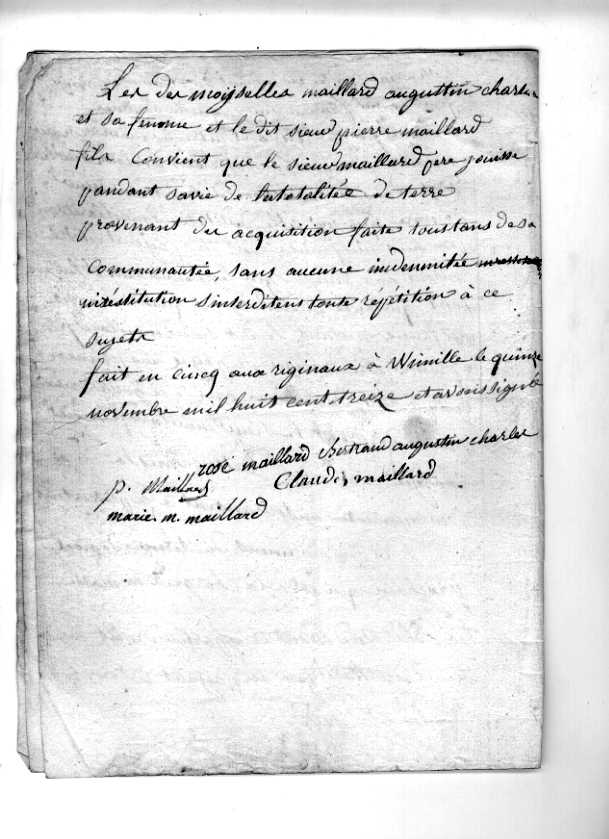 Les des moysselles maillard augustin charles
et sa femme et le dit sieur pierre maillard
fils Convient que le sieur maillard pere jouisse
pandant savie de latotalitée de terre
provenant des acquisition faite tous tans de sa
Communautée, sans aucune indemnitée
nirestitution s'interditens toute répétition à ce
sujets
fait en cincq aux riginaux à Wimille le quinze
novembre mil huit cent treize et avons signé
rosé maillard bertrand augustin charles
p. Maillard Claude maillard
marie. m. maillard